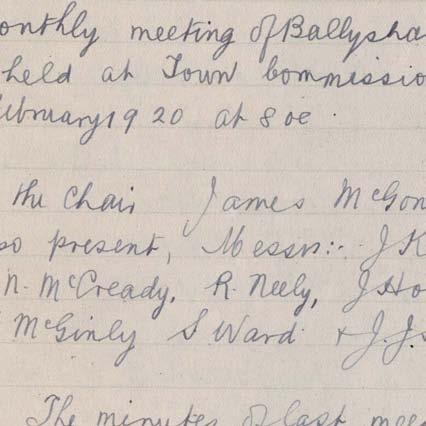 onthly meeting of Ballysha
held at Town Commissio
February 1920 at 8 oc
the Chair James McGon
so present, Messrs:- J K
N. McCready, R. Neely, J Ho
McGinly S Ward & J. J
The minutes of last mee